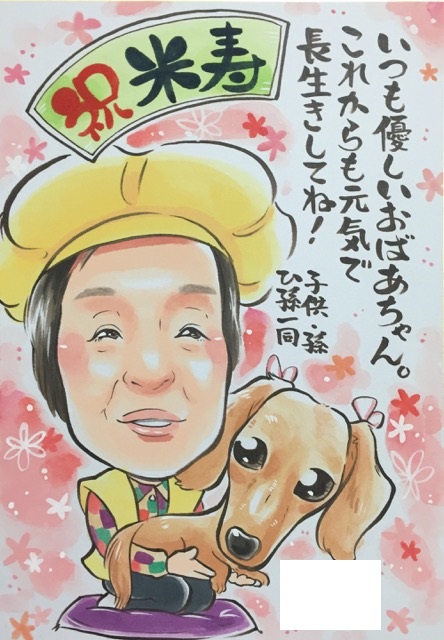 祝米寿
いつも優しいおばあちゃん。
これからも元気で
長生きしてね！
子供・孫
ひ孫一同